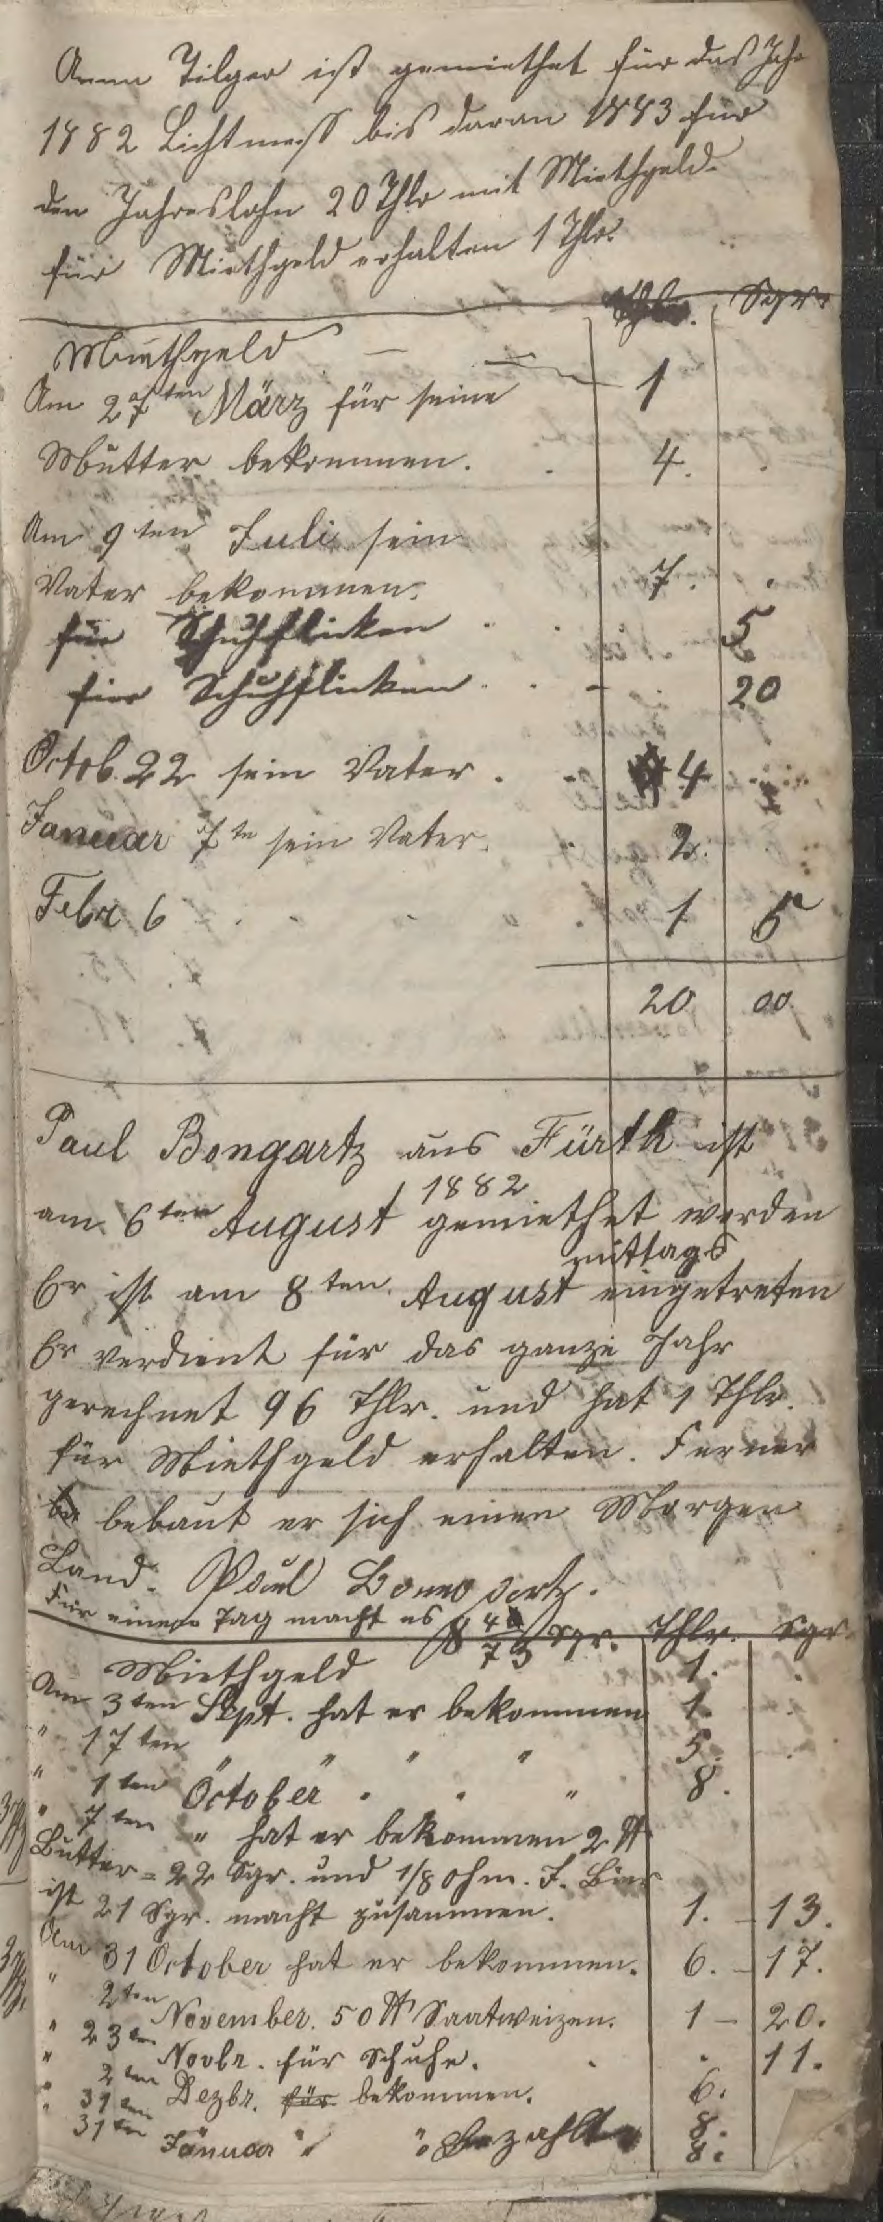 Anna Tilger ist gemiethet für das Jahr
1882 Lichtmess bis daran 1883 für
den Jahreslohn 20 Thlr mit Miethgeld.
für Miethgeld erhalten 1 Thlr.
Thlr. Sgr.
Miethgeld — 1
Am 27ten März für seine
Mutter bekommen. 4.
Am 9ten Juli sein
Vater bekommen. 7.
für Schuhflicken 5
für Schuhflicken - 20
Octob. 22 sein Vater. 4
Januar 7te sein Vater. 2.
Febr 6 1 5
20 00
Paul Bongartz aus Fürth ist
am 6ten August 1882 gemiethet worden
Er ist am 8ten August mittags eingetreten
Er verdient für das ganze Jahr
gerechnet 96 Thlr. und hat 1 Thlr.
für Miethgeld erhalten. Ferner
bebaut er sich einen Morgen
Land. Paul Bongartz.
Für einen Tag macht es 73 Sgr. Thlr. Sgr.
Miethgeld 1.
Am 3ten Sept. hat er bekommen 1.
" 17ten " " " 5.
" 1ten October " 8.
" 7ten " hat er bekommen 2 ℔
Butter = 22 Sgr. und 1/8 Ohm. J. Bier
ist 21 Sgr. macht zusammen. 1. - 13.
Am 31 October hat er bekommen. 6. - 17.
" 2ten November. 50 ℔ Saatweizen. 1 - 20.
" 23ten Novbr. für Schuhe. 11.
" 2ten Dezbr. für bekommen. 6.
" 31ten " " 8.
31ten Januar " bezahlt 8.